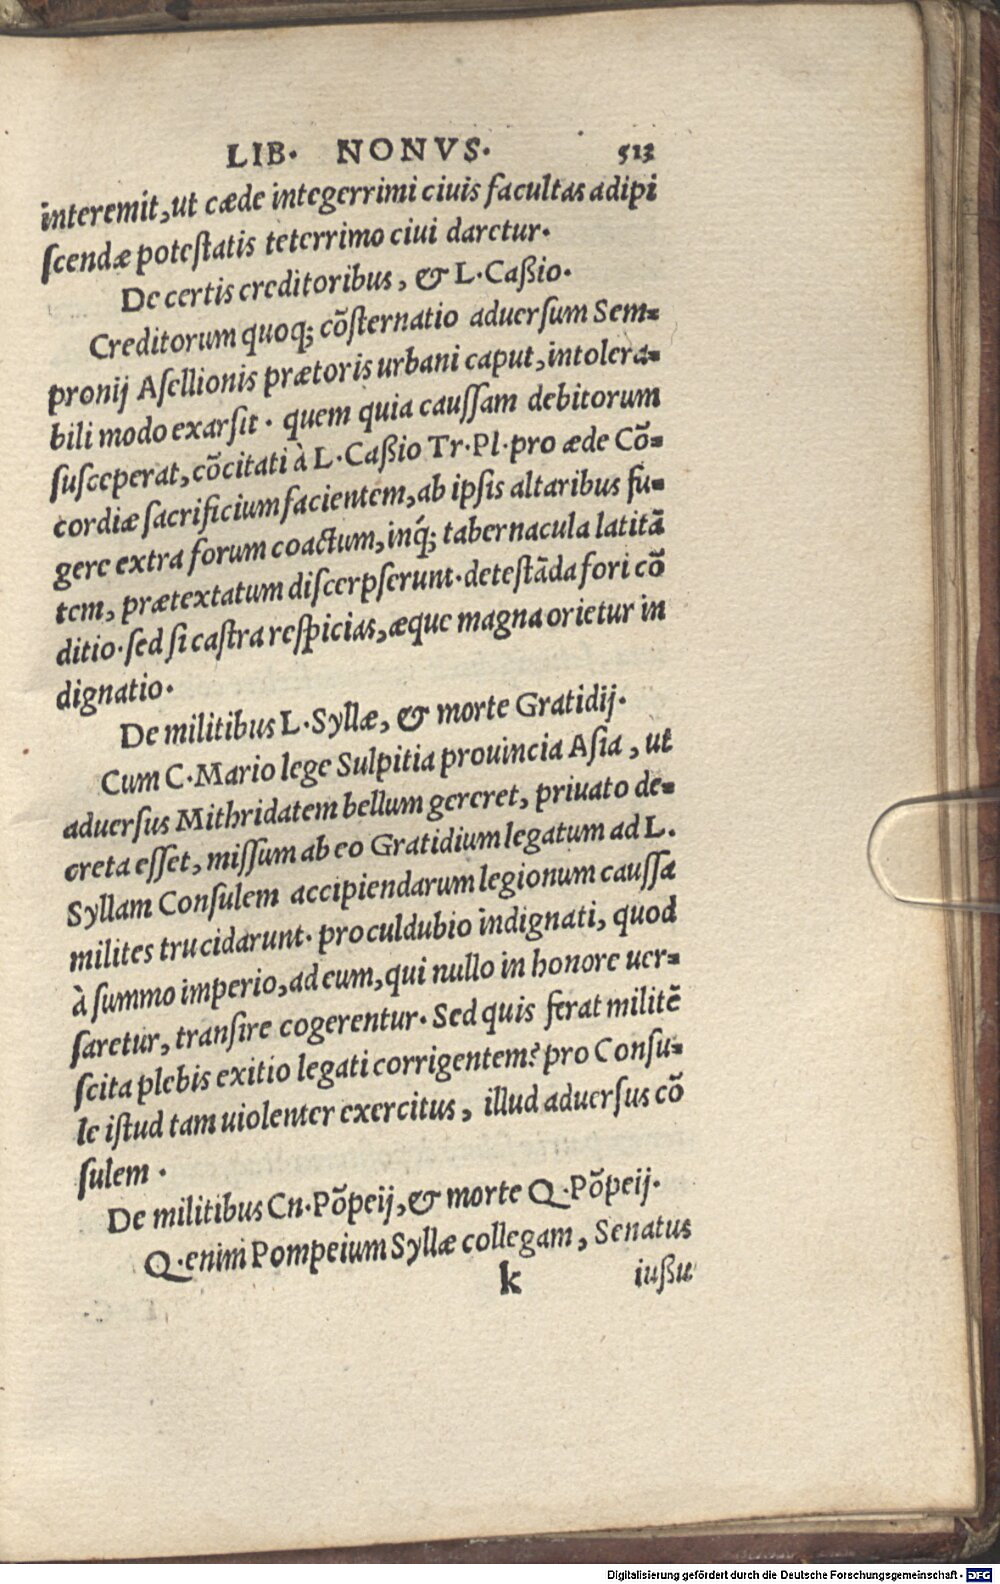 LIB. NONVS. 513
interemit, ut cæde integerrimi ciuis facultas adipi
ſcendæ poteſtatis teterrimo ciui daretur.
De certis creditoribus, & L. Caßio.
Creditorum quoq; cõſternatio aduerſum Sem-
pronij Aſellionis prætoris urbani caput, intolera-
bili modo exarſit. quem quia cauſſam debitorum
ſuſceperat, cõcitati à L. Caßio Tr. Pl. pro æde Cõ-
cordiæ ſacrificium facientem, ab ipſis altaribus fu-
gere extra forum coactum, inq́; tabernacula latitã
tem, prætextatum diſcerpſerunt. deteſtãda fori cõ
ditio. ſed ſi caſtra reſpicias, æque magna orietur in
dignatio.
De militibus L. Syllæ, & morte Gratidij.
Cum C. Mario lege Sulpitia prouincia Aſia, ut
aduerſus Mithridatem bellum gereret, priuato de-
creta eſſet, miſſum ab eo Gratidium legatum ad L.
Syllam Conſulem accipiendarum legionum cauſſa
milites trucidarunt. proculdubio indignati, quod
à ſummo imperio, ad eum, qui nullo in honore uer-
ſaretur, tranſire cogerentur. Sed quis ferat militẽ
ſcita plebis exitio legati corrigentem? pro Conſu-
le iſtud tam uiolenter exercitus, illud aduerſus cõ
ſulem.
De militibus Cn. Põpeij, & morte Q. Põpeij.
Q. enim Pompeium Syllæ collegam, Senatus
k iußu
Digitalisierung gefördert durch die Deutsche Forschungsgemeinschaft - DFG